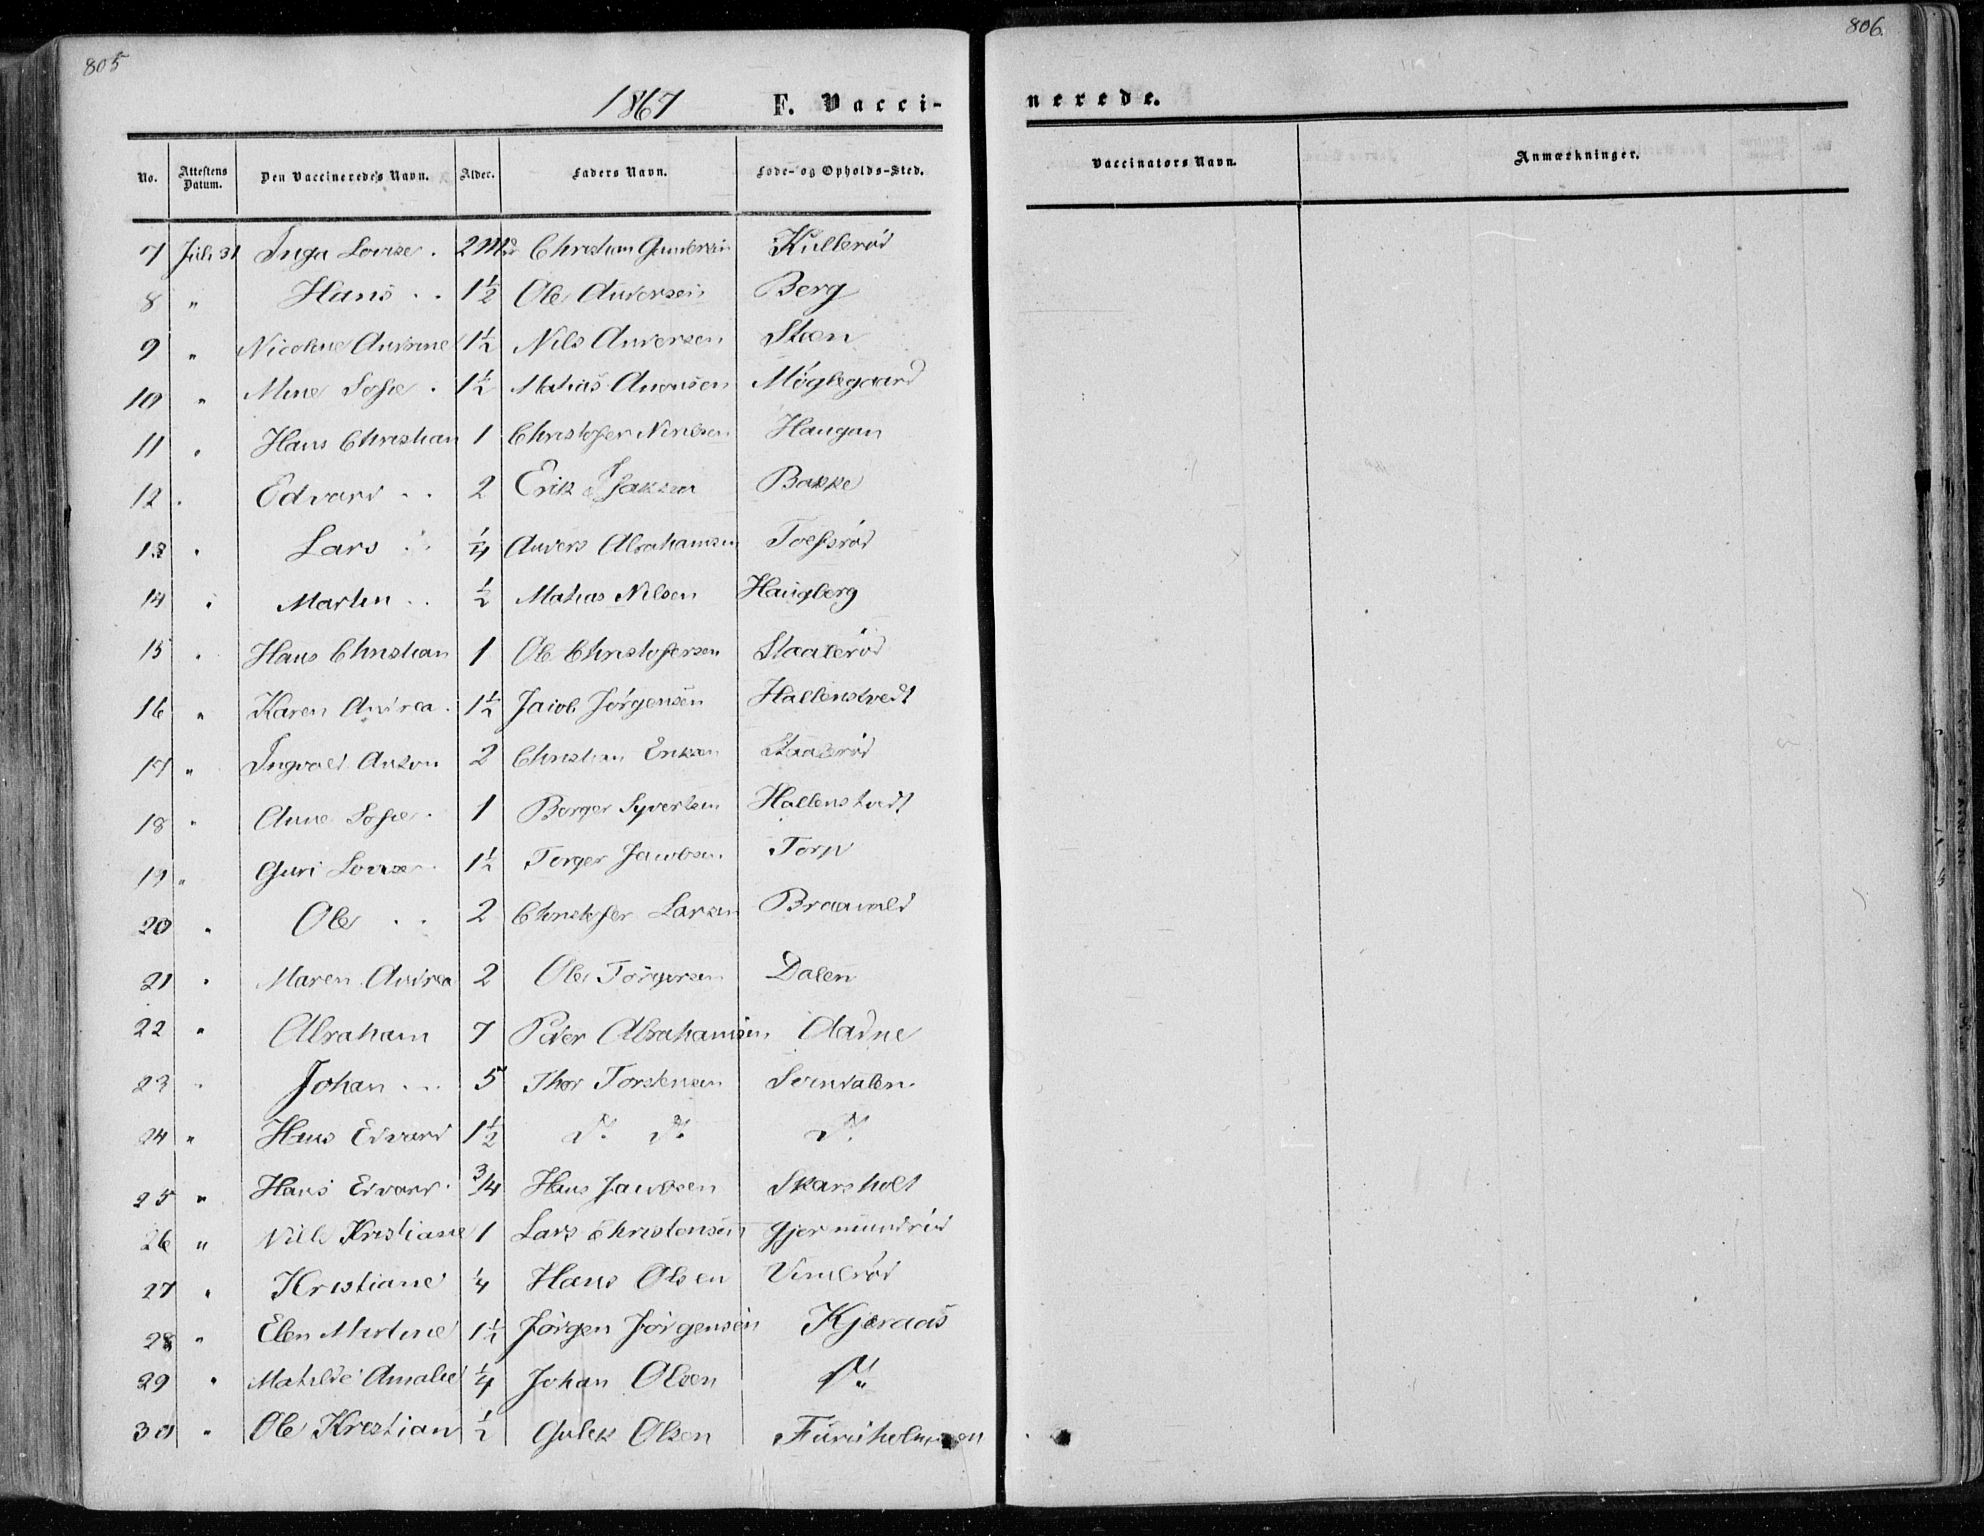 805
806.
1867 F. Vacci-
nerede.
No. Attestens Datum. Den Vaccineredes Navn. Alder. Faders Navn. Føde- og Opholds-Sted.
Vaccinators Navn. Anmærkninger.
7 Juli 31 Inga Lovise . 2 Christian Gundersen Kullerød
8 " Hans . . 1½ Ole Andersen Berg
9 " Nicoline Andrine 1½ Nils Andersen Steen
10 " Mine Sofie . 1½ Matias Møglegaard
11 " Hans Christian 1 Christofer Haugan
12 . Edvard . . 2 Erik Isaksen Bakke
13 " Lars . . ¼ Anders Abrahamsen
14 " Martin . . ½ Matias Nilsen Haugberg
15 " Hans Christian 1 Ole Christofersen Staalerød
16 " Karen Andrea . 1½ Jacob Jørgensen Hallenstvedt
17 " Ingvald Anton 2 Christian Eriksen Staalerød
18 " Anne Sofie . 1 Borger Syvertsen Hallenstvedt
19 " Guri Lovise . 1½ Torger Jacobsen Torp
20 " Ole . . 2 Christofer Larsen Braavold
21 " Maren Andrea 2 Ole Torgersen Dalen
22 " Abraham 7 Peder Abrahamsen Aadne
23 " Johan . . . 5 Thor Torstensen Svendalen
24 " Hans Edvard 1½ Do Do Do
25 " Hans Edvard . ¾ Hans Jacobsen Skarsholt
26 " Nille Kristiane 1 Lars Christensen Gjermundrød
27 " Kristiane ¼ Hans Olsen
28 " Elen Martine 1½ Jørgen Jørgensen Kjeraas
29 " Matilde Amalie ¼ Johan Olsen Do
30 " Ole Kristian ½ Gulek Olsen Furuholmen